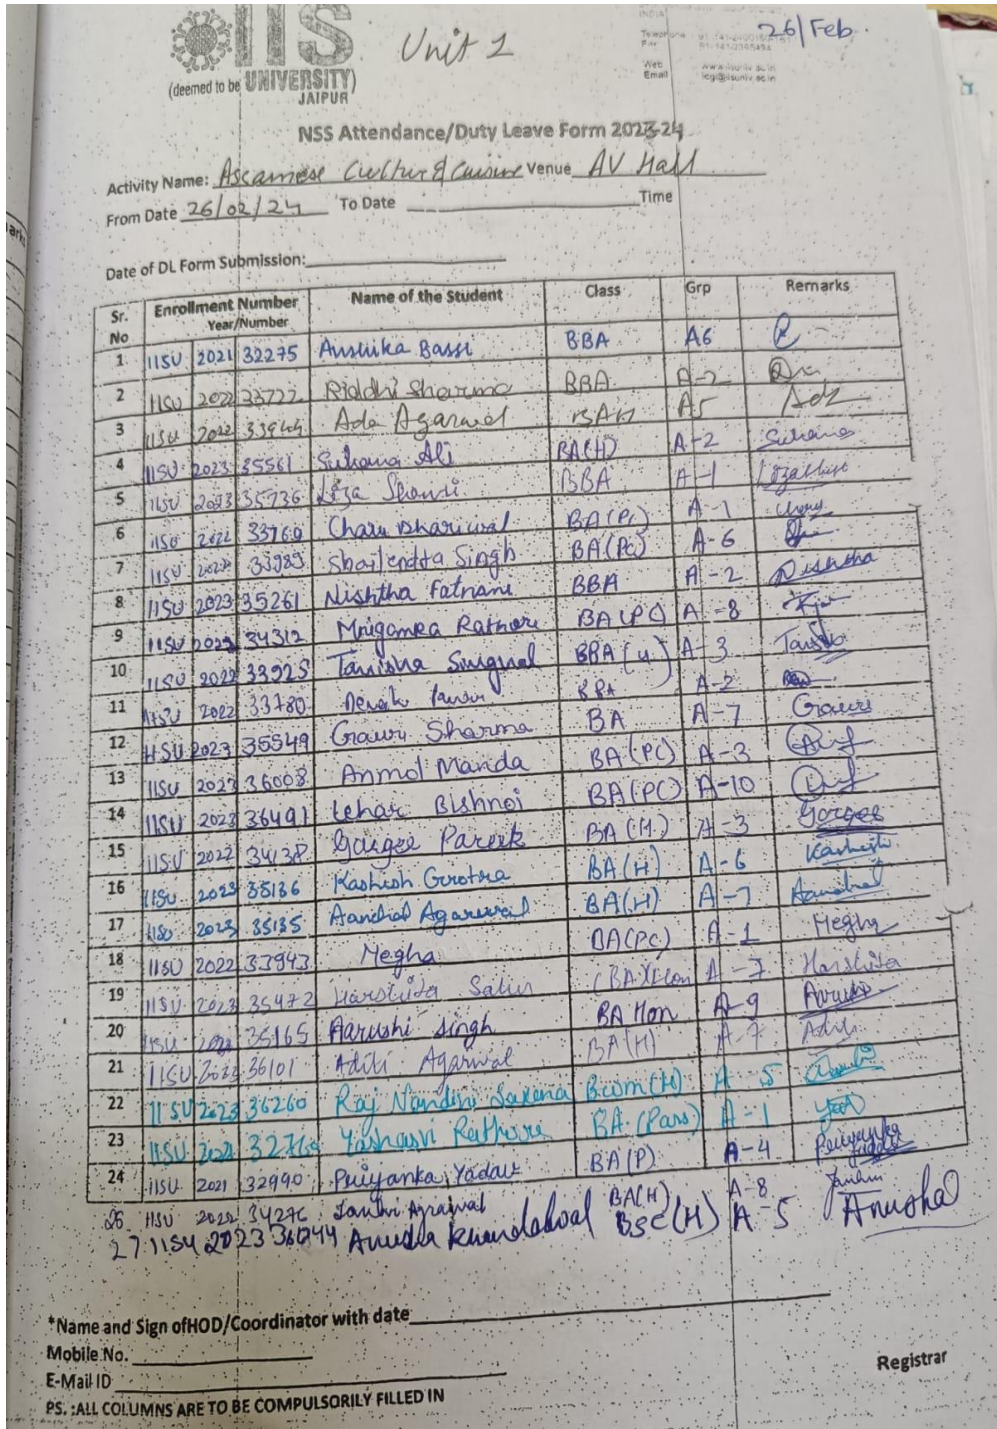 IIS
Unit 1
26/Feb.
INDIA
Telephone
Fax
Web www.iisuniv.ac.in
Email icg@iisuniv.ac.in
(deemed to be UNIVERSITY)
JAIPUR
NSS Attendance/Duty Leave Form 2023-24
Activity Name: Assamese Cultur & Cuisine Venue AV Hall
From Date 26/02/24 To Date Time
Date of DL Form Submission:
Sr. No Enrollment Number Year/Number Name of the Student Class Grp Remarks
1 IISU 2021 32275 Anshika Bassi BBA A6
2 IISU 2022 33722 Riddhi Sharma BBA A-2
3 IISU 2022 Ada Agarwal A5 Ada
4 IISU 2023 35561 Suhana Ali BA(H) A-2 Suhana
5 IISU 2023 35736 Liza BBA A-1
6 IISU 2022 33760 Charu Dhariwal BA(PC) A-1 Charu
7 IISU 2022 33983 Shailendra Singh BA(PC) A-6
8 IISU 2023 35261 Nishtha Fatnani BBA A-2 Nishtha
9 IISU 2022 34312 Mrigamea Rathore BA(PC) A-8
10 IISU 2022 33925 Tanisha Singhal BBA A-3 Tanisha
11 IISU 2022 33780 BBA A-2
12 IISU 2023 35549 Gauri Sharma BA A-7 Gauri
13 IISU 2023 36008 Anmol Manda BA(PC) A-3
14 IISU 2023 36491 Lehar Bishnoi BA(PC) A-10
15 IISU 2022 34138 Gargee Pareek BA(H.) A-3 Gargee
16 IISU 2023 35136 Kashish Grotra BA(H) A-6 Kashish
17 IISU 2023 35135 Aanchal Agarwal BA(H) A-7 Aanchal
18 IISU 2022 33943 Megha BA(PC) A-1 Megha
19 IISU 2023 35472 Harshita A-7 Harshita
20 IISU 35165 Aarushi Singh BA Hon A-9 Aarushi
21 IISU 2023 36101 Aditi Agarwal BA(H) A-7 Aditi
22 IISU 2023 36260 Raj Nandini Saxena B.com(H) A-5
23 IISU 32760 Yashasvi Rathore BA.(Pass) A-1
24 IISU 2021 32990 Priyanka Yadav BA(P) A-4 Priyanka Yadav
26. IISU 2022 34276 Agrawal BA(H) A-8
27. IISU 2023 Anusha Khandelwal BSC(H) A-5 Anusha
*Name and Sign ofHOD/Coordinator with date
Mobile No.
E-Mail ID
Registrar
PS. :ALL COLUMNS ARE TO BE COMPULSORILY FILLED IN